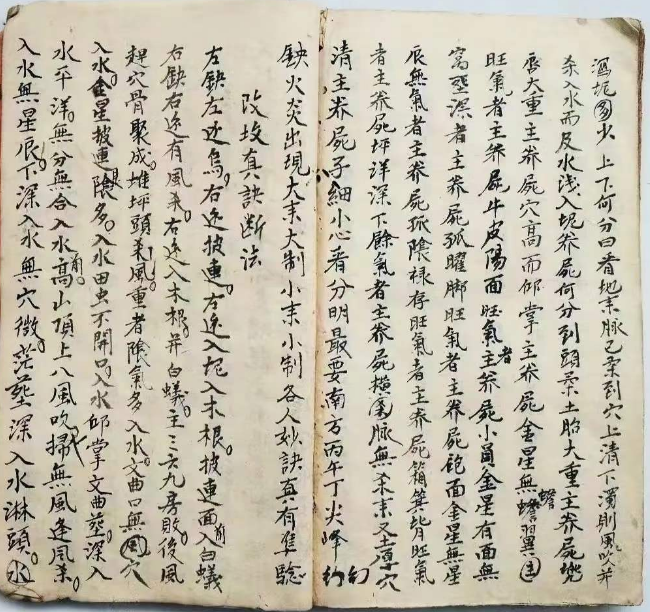 濁坭圖少上下何分曰看地來脉已葉到穴上清下濁則風吹并
杀入水而及水淺入坭养屍何分到頭葉土胎大重主养屍兠
唇大重主养屍穴高而邱掌主养屍金星無蟾翼主
旺氣者主养屍牛皮陽面旺氣者主养屍小員金星有面無
窝塟深者主养屍孤曜脚旺氣者主养屍飽面金星無星
辰無氣者主养屍孤陰祿存旺氣者主养屍箱箕皆旺氣
者主养屍坪洋深下餘氣者主养屍橫龍脉無杀來又土厚穴
清主养屍子細小心看分明最要南方丙午丁火降
缺火炎出現大耒大制小耒小制各人妙訣真有隼驗
改坟真訣断法
左缺左边烏右边披連左边入坭入木根披連面前入白蟻
右缺右边有風來右边入木根并白蟻主三六九房敗後風
趕穴骨聚成堆坪頭葉風重者陰氣多入水文曲口無風穴
入水金星披連陰多入水田虫不開口入水邱掌文曲塟深入
水平洋無分無合入水高山頂上八風吹掃無風逢風杀
入水無星辰下深入水無穴微茫塟深入水淋頭水